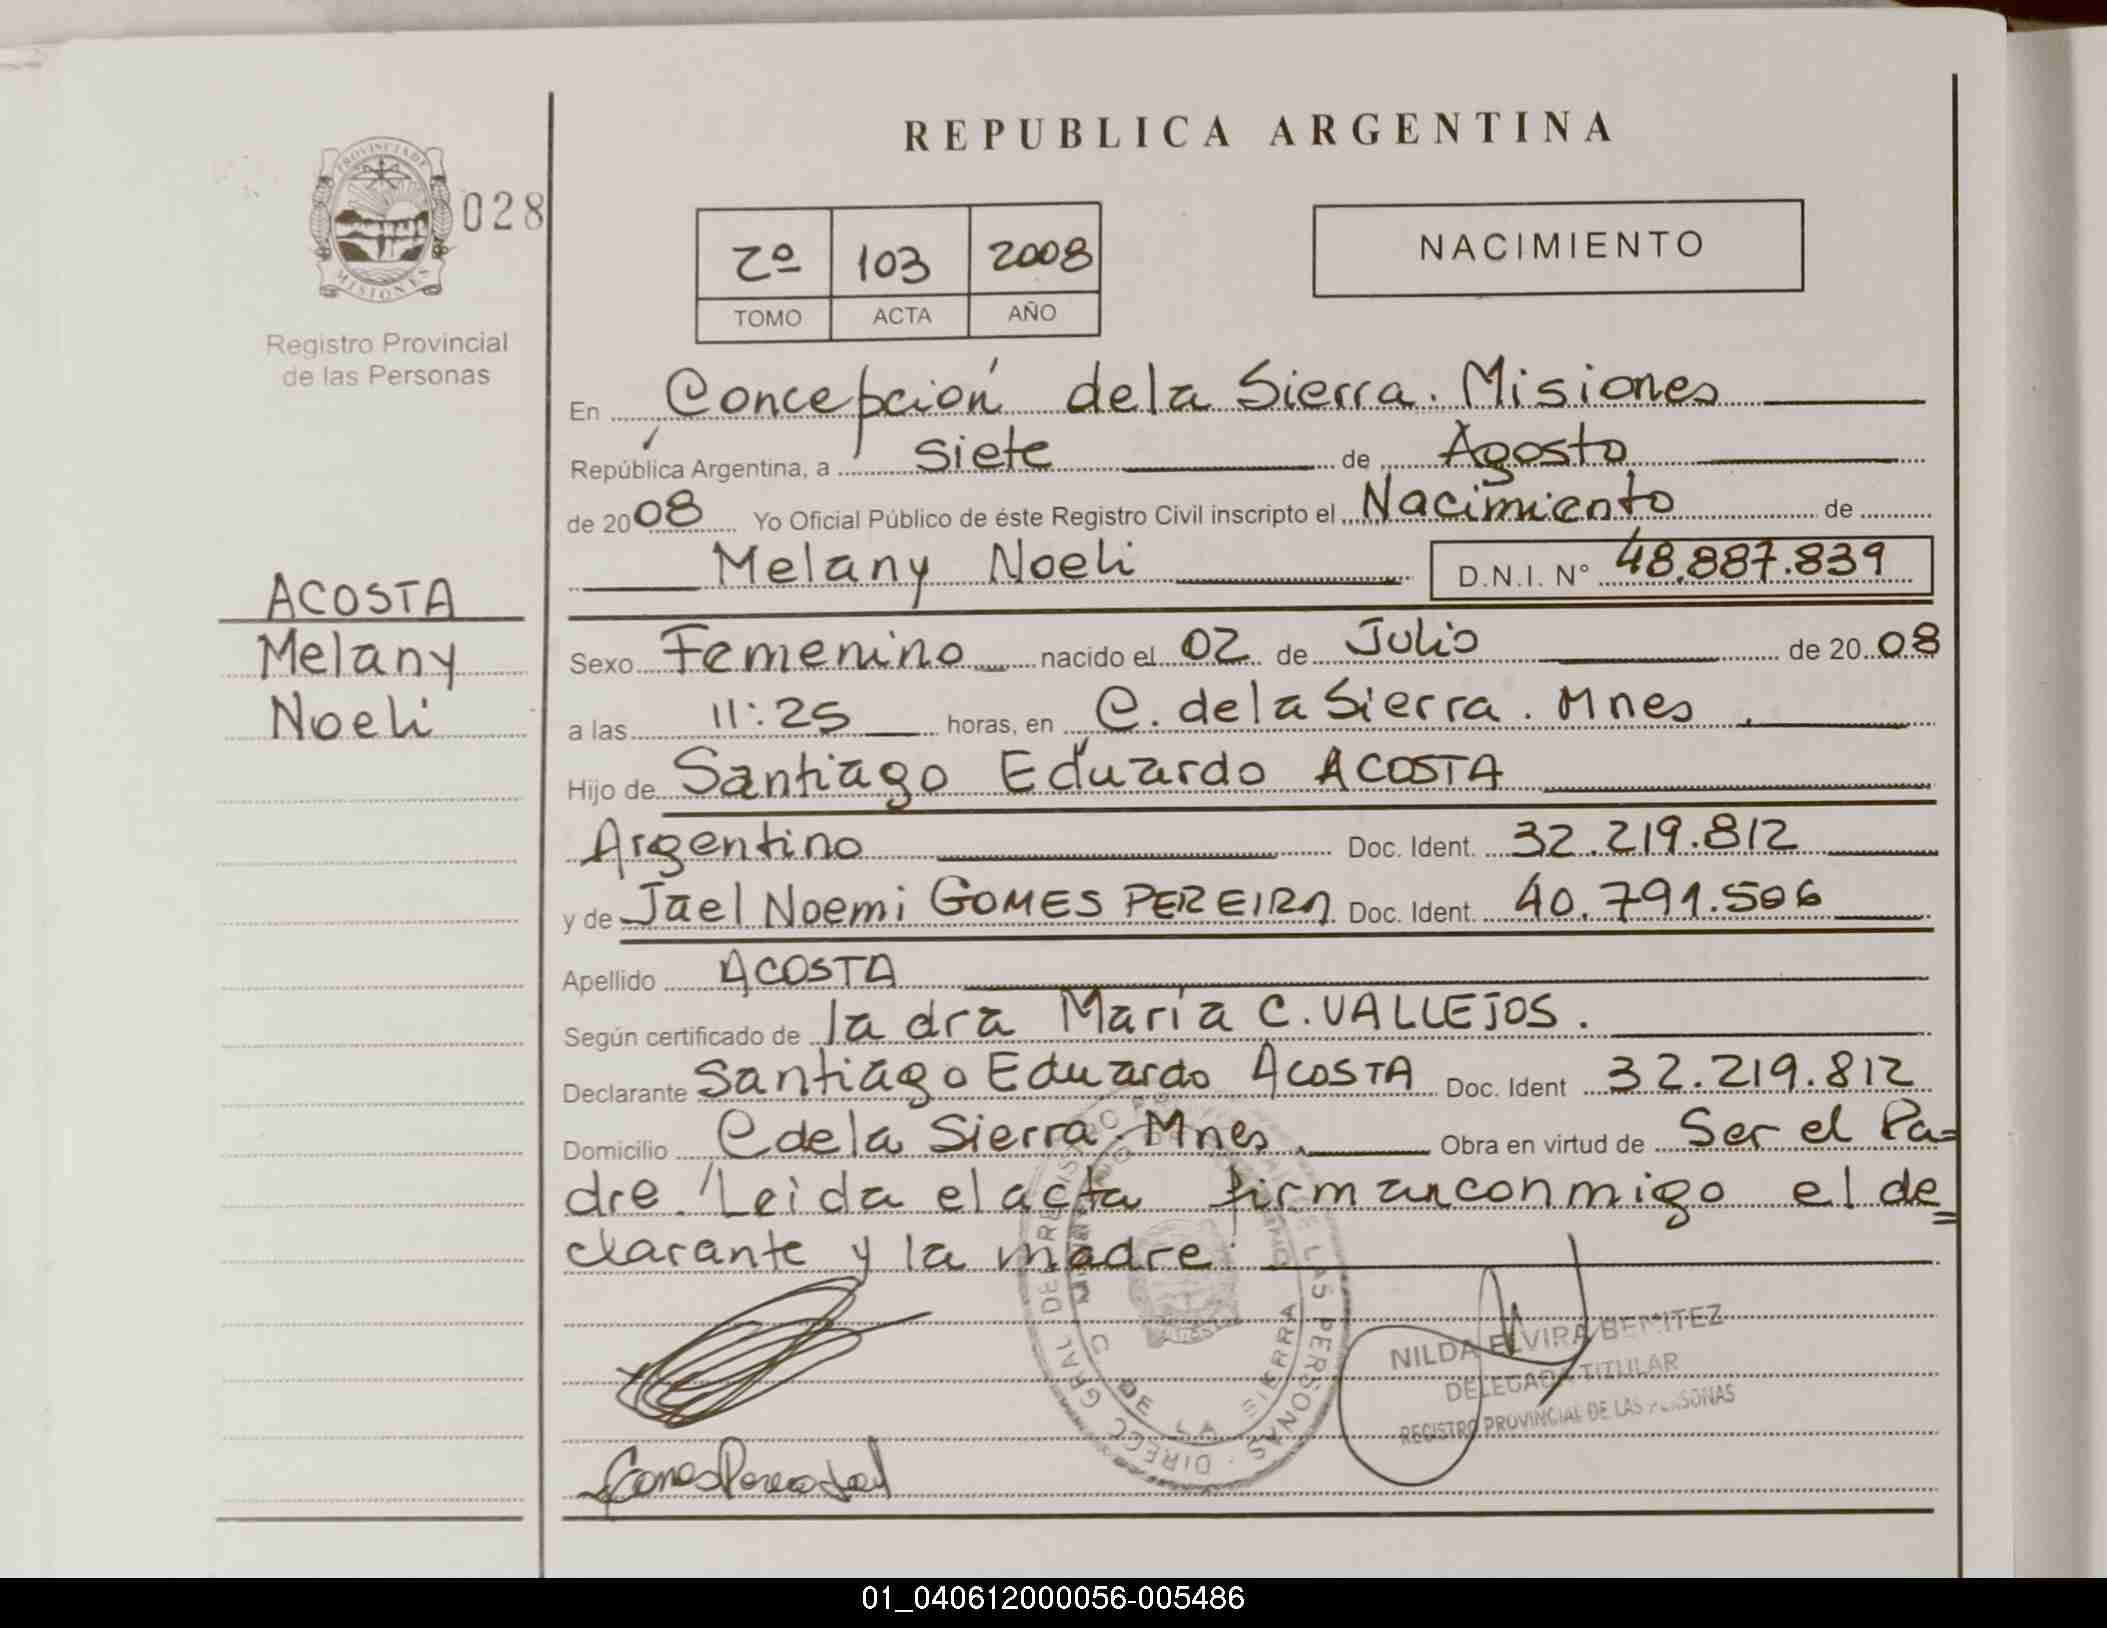 REPUBLICA ARGENTINA
PROVINCIA DE MISIONES
028
Registro Provincial
de las Personas
2º 103 2008
TOMO ACTA AÑO
NACIMIENTO
En Concepción de la Sierra. Misiones
República Argentina, a siete de Agosto
de 2008 Yo Oficial Público de éste Registro Civil inscripto el Nacimiento de
Melany Noeli D.N.I. Nº 48.887.839
ACOSTA
Melany
Noeli
Sexo Femenino nacido el 02 de Julio de 2008
a las 11:25 horas, en C. de la Sierra. Mnes.
Hijo de Santiago Eduardo ACOSTA
Argentino Doc. Ident. 32.219.812
y de Jael Noemi GOMES PEREIRA Doc. Ident. 40.791.506
Apellido ACOSTA
Según certificado de la dra María C. VALLEJOS.
Declarante Santiago Eduardo ACOSTA Doc. Ident 32.219.812
Domicilio C de la Sierra. Mnes. Obra en virtud de Ser el Pa=
dre. Leida el acta firman conmigo el de=
clarante y la madre.
DIRECC GRAL DE REGISTRO DE LAS PERSONAS
C. DE LA SIERRA
NILDA ELVIRA BENITEZ
DELEGADA TITULAR
REGISTRO PROVINCIAL DE LAS PERSONAS
01_040612000056-005486